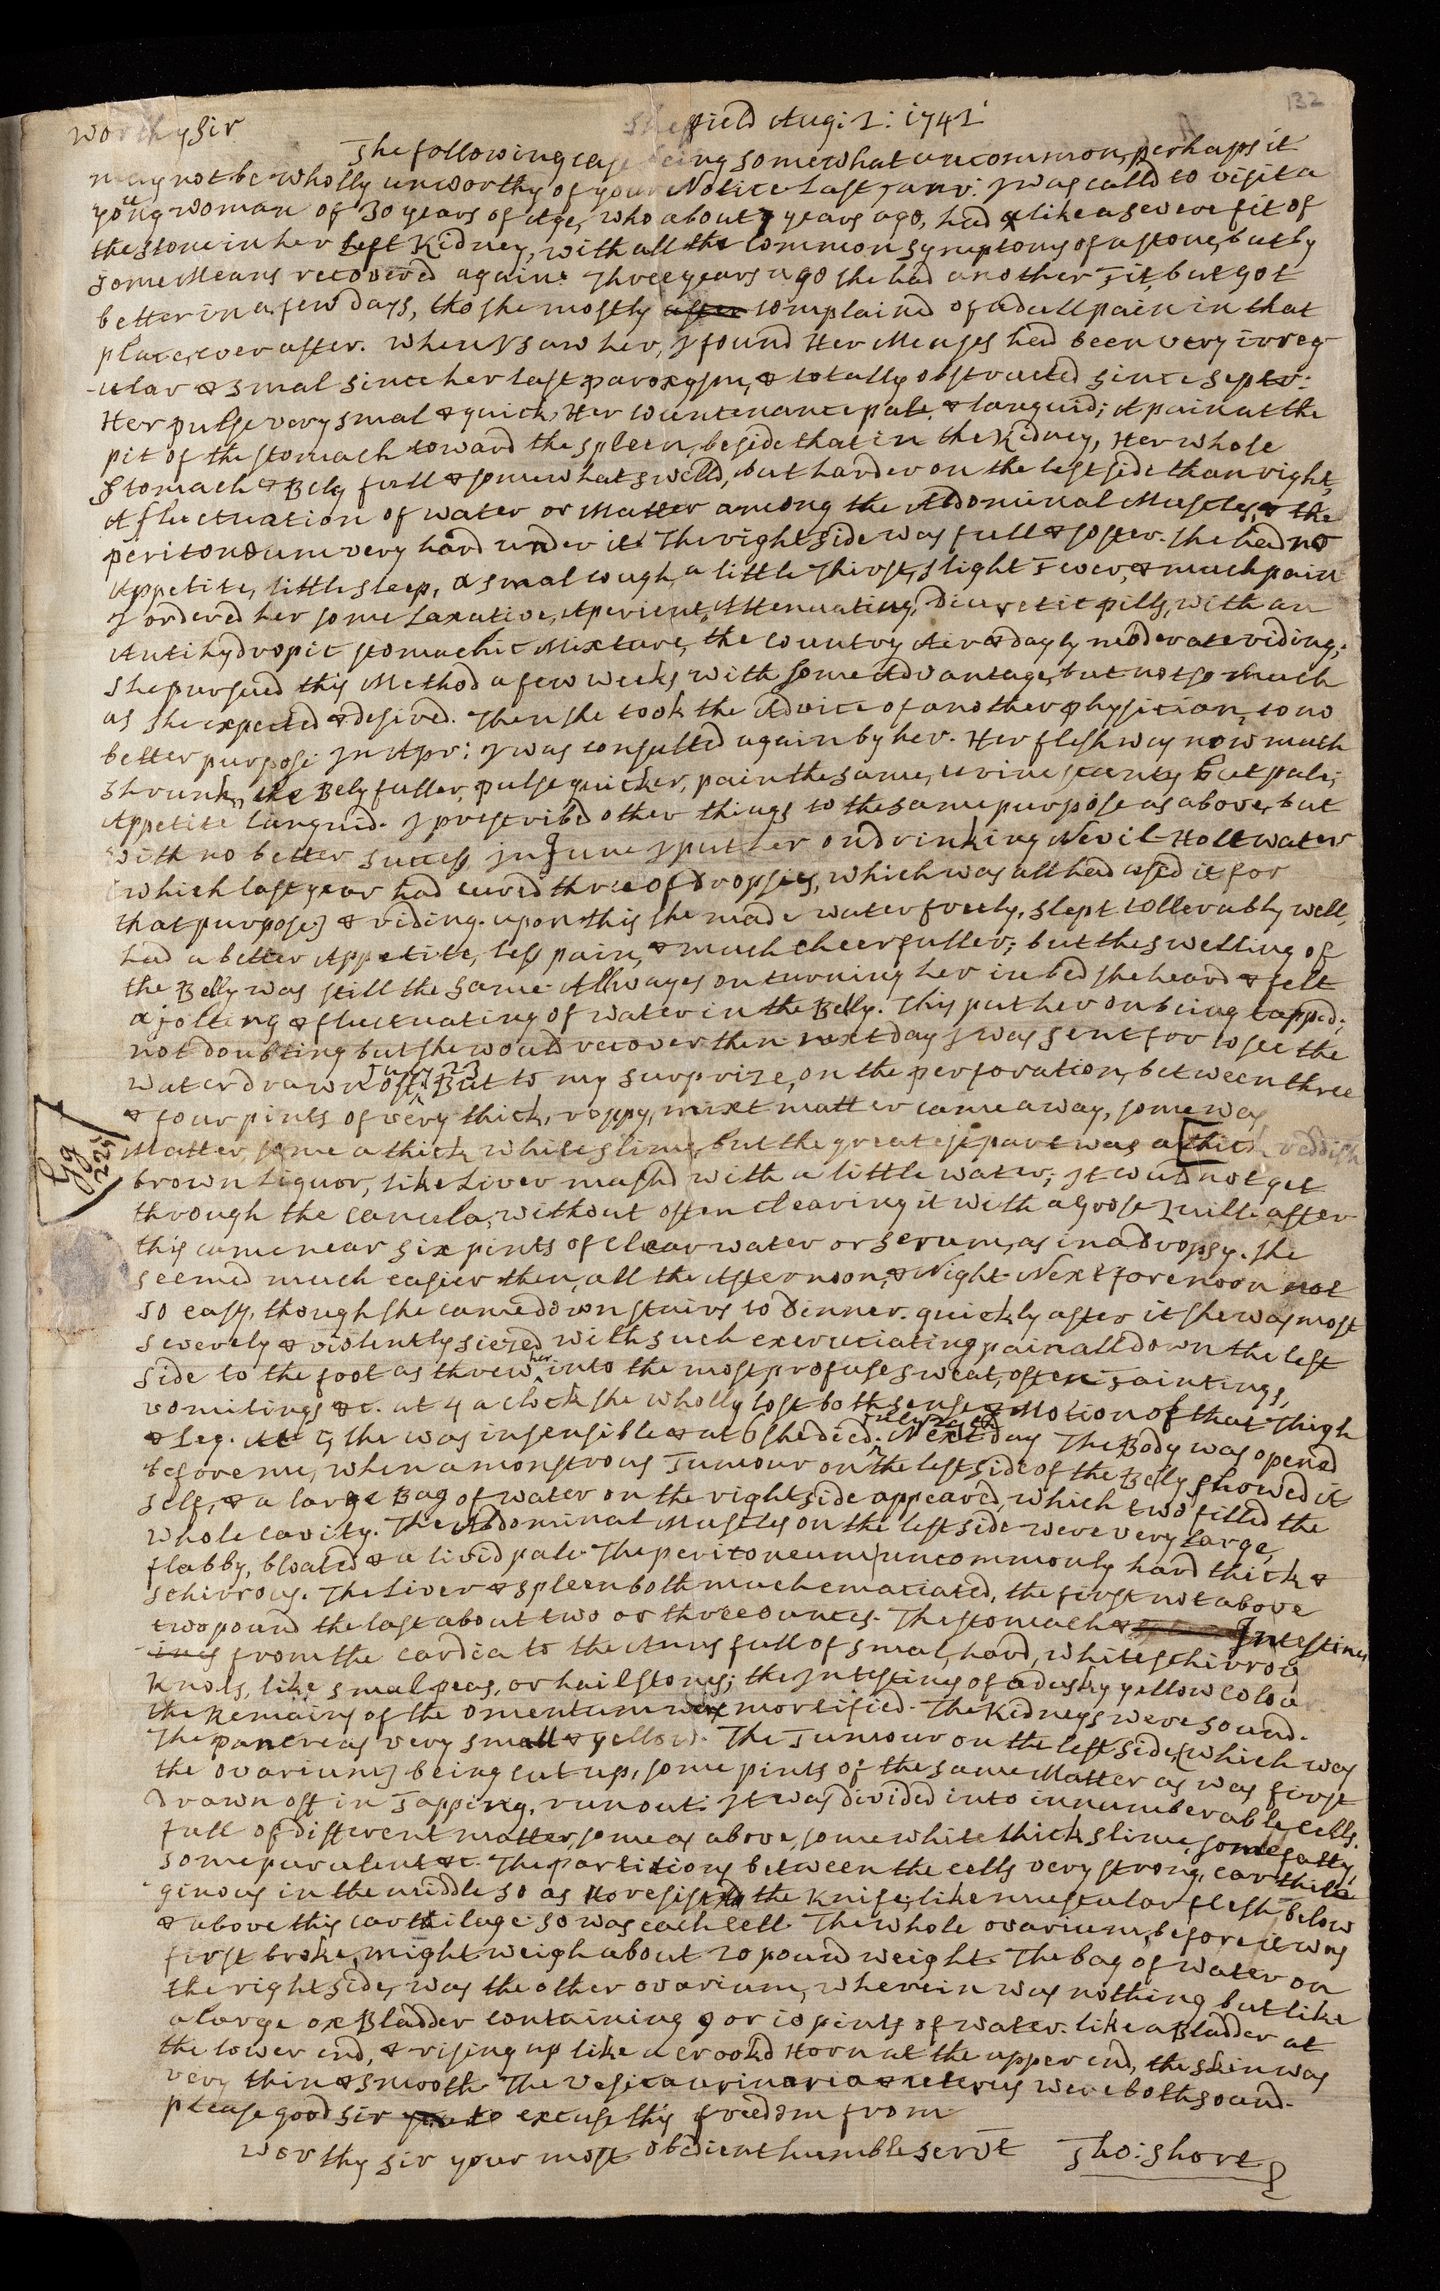 132
Sheffield Aug: 1: 1741
Worthy Sir
The following case being somewhat uncommon, perhaps it
may not be wholly unworthy of your Notice. Last Janv: I was calld to visit a
young woman of 30 years of Age, who about 7 years ago, had a like a severe fit of
the stone in her left Kidney, with all the common symptoms of a stone, but by
some Means recovered again. Three years ago she had another Fit, but got
better in a few days, tho she mostly after complained of a dull pain in that
place, ever after. When I saw her, I found Her Menses had been very irreg
-ular & smal since her last paroxysm, & totally obstructed since Septr:
Her pulse very smal & quick, Her countenance pale, & languid; A pain at the
pit of the stomach toward the spleen, beside that in the Kidney, Her whole
Stomach & Bely full & somewhat swelld, but harder on the left side than right,
A fluctuation of water or Matter among the Abdominal Muscles, & the
peritonaeum very hard under it. The right side was full & softer. She had no
Appetite, little sleep, a smal cough, a little Thirst, slight Fever, & much pain
I ordered her some Laxative, Aperient, Attenuating, Diuretic pills, with an
Antihydropic stomachic Mixture, the country Air & dayly moderate riding;
She pursued this Method a few weeks with some Advantage, but not so much
as she expected & desired. Then she took the Advice of another physician, to no
better purpose. In Apr: I was consulted again by her. Her flesh was now much
shrunk, the Bely fuller, pulse quicker, pain the same, urine scanty but pale,
Appetite languid. I prescribed other things to the same purpose as above, but
with no better success. In June I put her on drinking Nevil Holt water
(which last year had cured three of Dropsies, which was all had used it for
that purpose) & riding. upon this she made water freely, slept tollerably well,
had a better Appetite, less pain, & much cheerfuller; but the swelling of
the Belly was still the same. Allwayes on turning her in bed she heard & felt
a jolting & fluctuating of water in the Belly. This put her on being tapped;
not doubting but she would recover then. next day I was sent for to see the
water drawn off, July 23 But to my surprize, on the perforation, between three
& four pints of very thick, roppy, mixt matter came away, some was
Matter, some a thick white slime, but the greatest part was a [thick reddish
brown Liquor, like Liver mashd with a little water; It woud not get
through the canula, without often clearing it with a Goose Quill. after
this came near six pints of clear water or serum, as in a dropsy. She
seemed much easier then, all the Afternoon, & Night. Next forenoon not
so easy, though she came down stairs to Dinner. quickly after it she was most
severely & violently siezed with such excruciating pain all down the left
side to the foot as threw her into the most profuse sweat, often Faintings,
vomitings &c. at 4 a clock she wholly lost both sense & Motion of that Thigh
& Leg. At 5 she was insensible & at 6 she died. Next day The Body was opened
before me, when a monstrous Tumour on the left side of the Belly showed it
self, & a large Bag of water on the right side appeared, which two filled the
whole cavity. The Abdominal Muscles on the left side were very large,
flabby, bloated & a livid pale. The peritoneum uncommonly hard thick &
schirrous. The Liver & spleen both much emaciated, the first not above
two pound the last about two or three ounces. The stomach & Intestines
from the cardia to the Anus full of smal, hard, white schirrous
Knots, like smal peas, or hailstones; the Intestins of a dusky yellow colour.
the Remains of the omentum was mortified. The Kidneys were sound.
The pancreas very small & yellow. The Tumour on the left side, (which was
the ovarium) being cut up, some pints of the same Matter as was first
Drawn off in Tapping, run out. It was divided into innumberable cells.
full of different matter, some as above, some white thick slime some salty
some purulent &c. The partitions between the cells very strong, carthila
ginous in the middle so as to resist the Knife, like muscular flesh below
& above this carthilage so was each cell. The whole ovarium, before it was
first broke, might weigh about 20 pound weight. The bag of water on
the right side, was the other ovarium, wherein was nothing but like
a large ox Bladder containing 9 or 10 pints of water. like a Bladder at
the lower end, & rising up like a crookd Horn at the upper end, the skin was
very thin & smooth. The vesica urinaria & uterus were both sound.
please good sir to excuse this freedom from
Worthy sir your most obedient humble servt Tho: Short